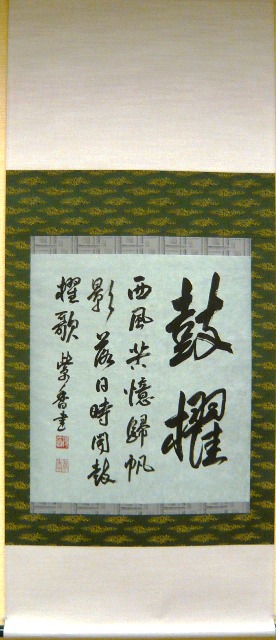 鼓櫂
西風共憶歸帆
影落日時聞鼓
櫂歌 紫香書